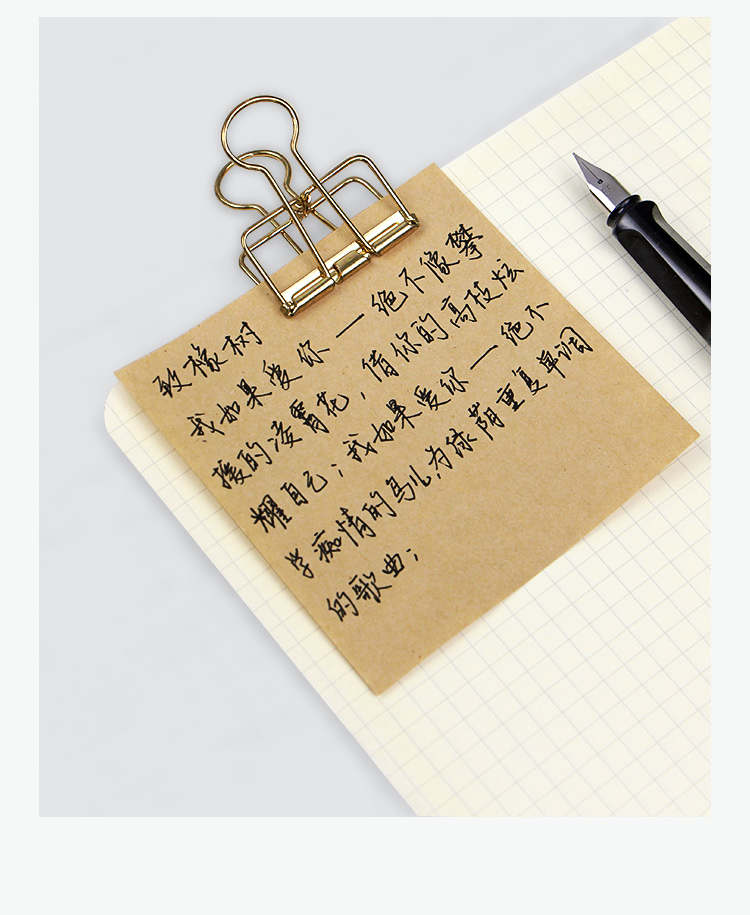 致橡树
我如果爱你一绝不像攀
援的凌霄花，借你的高枝炫
耀自己；我如果爱你一绝不
学痴情的鸟儿，为绿荫重复单调
的歌曲；